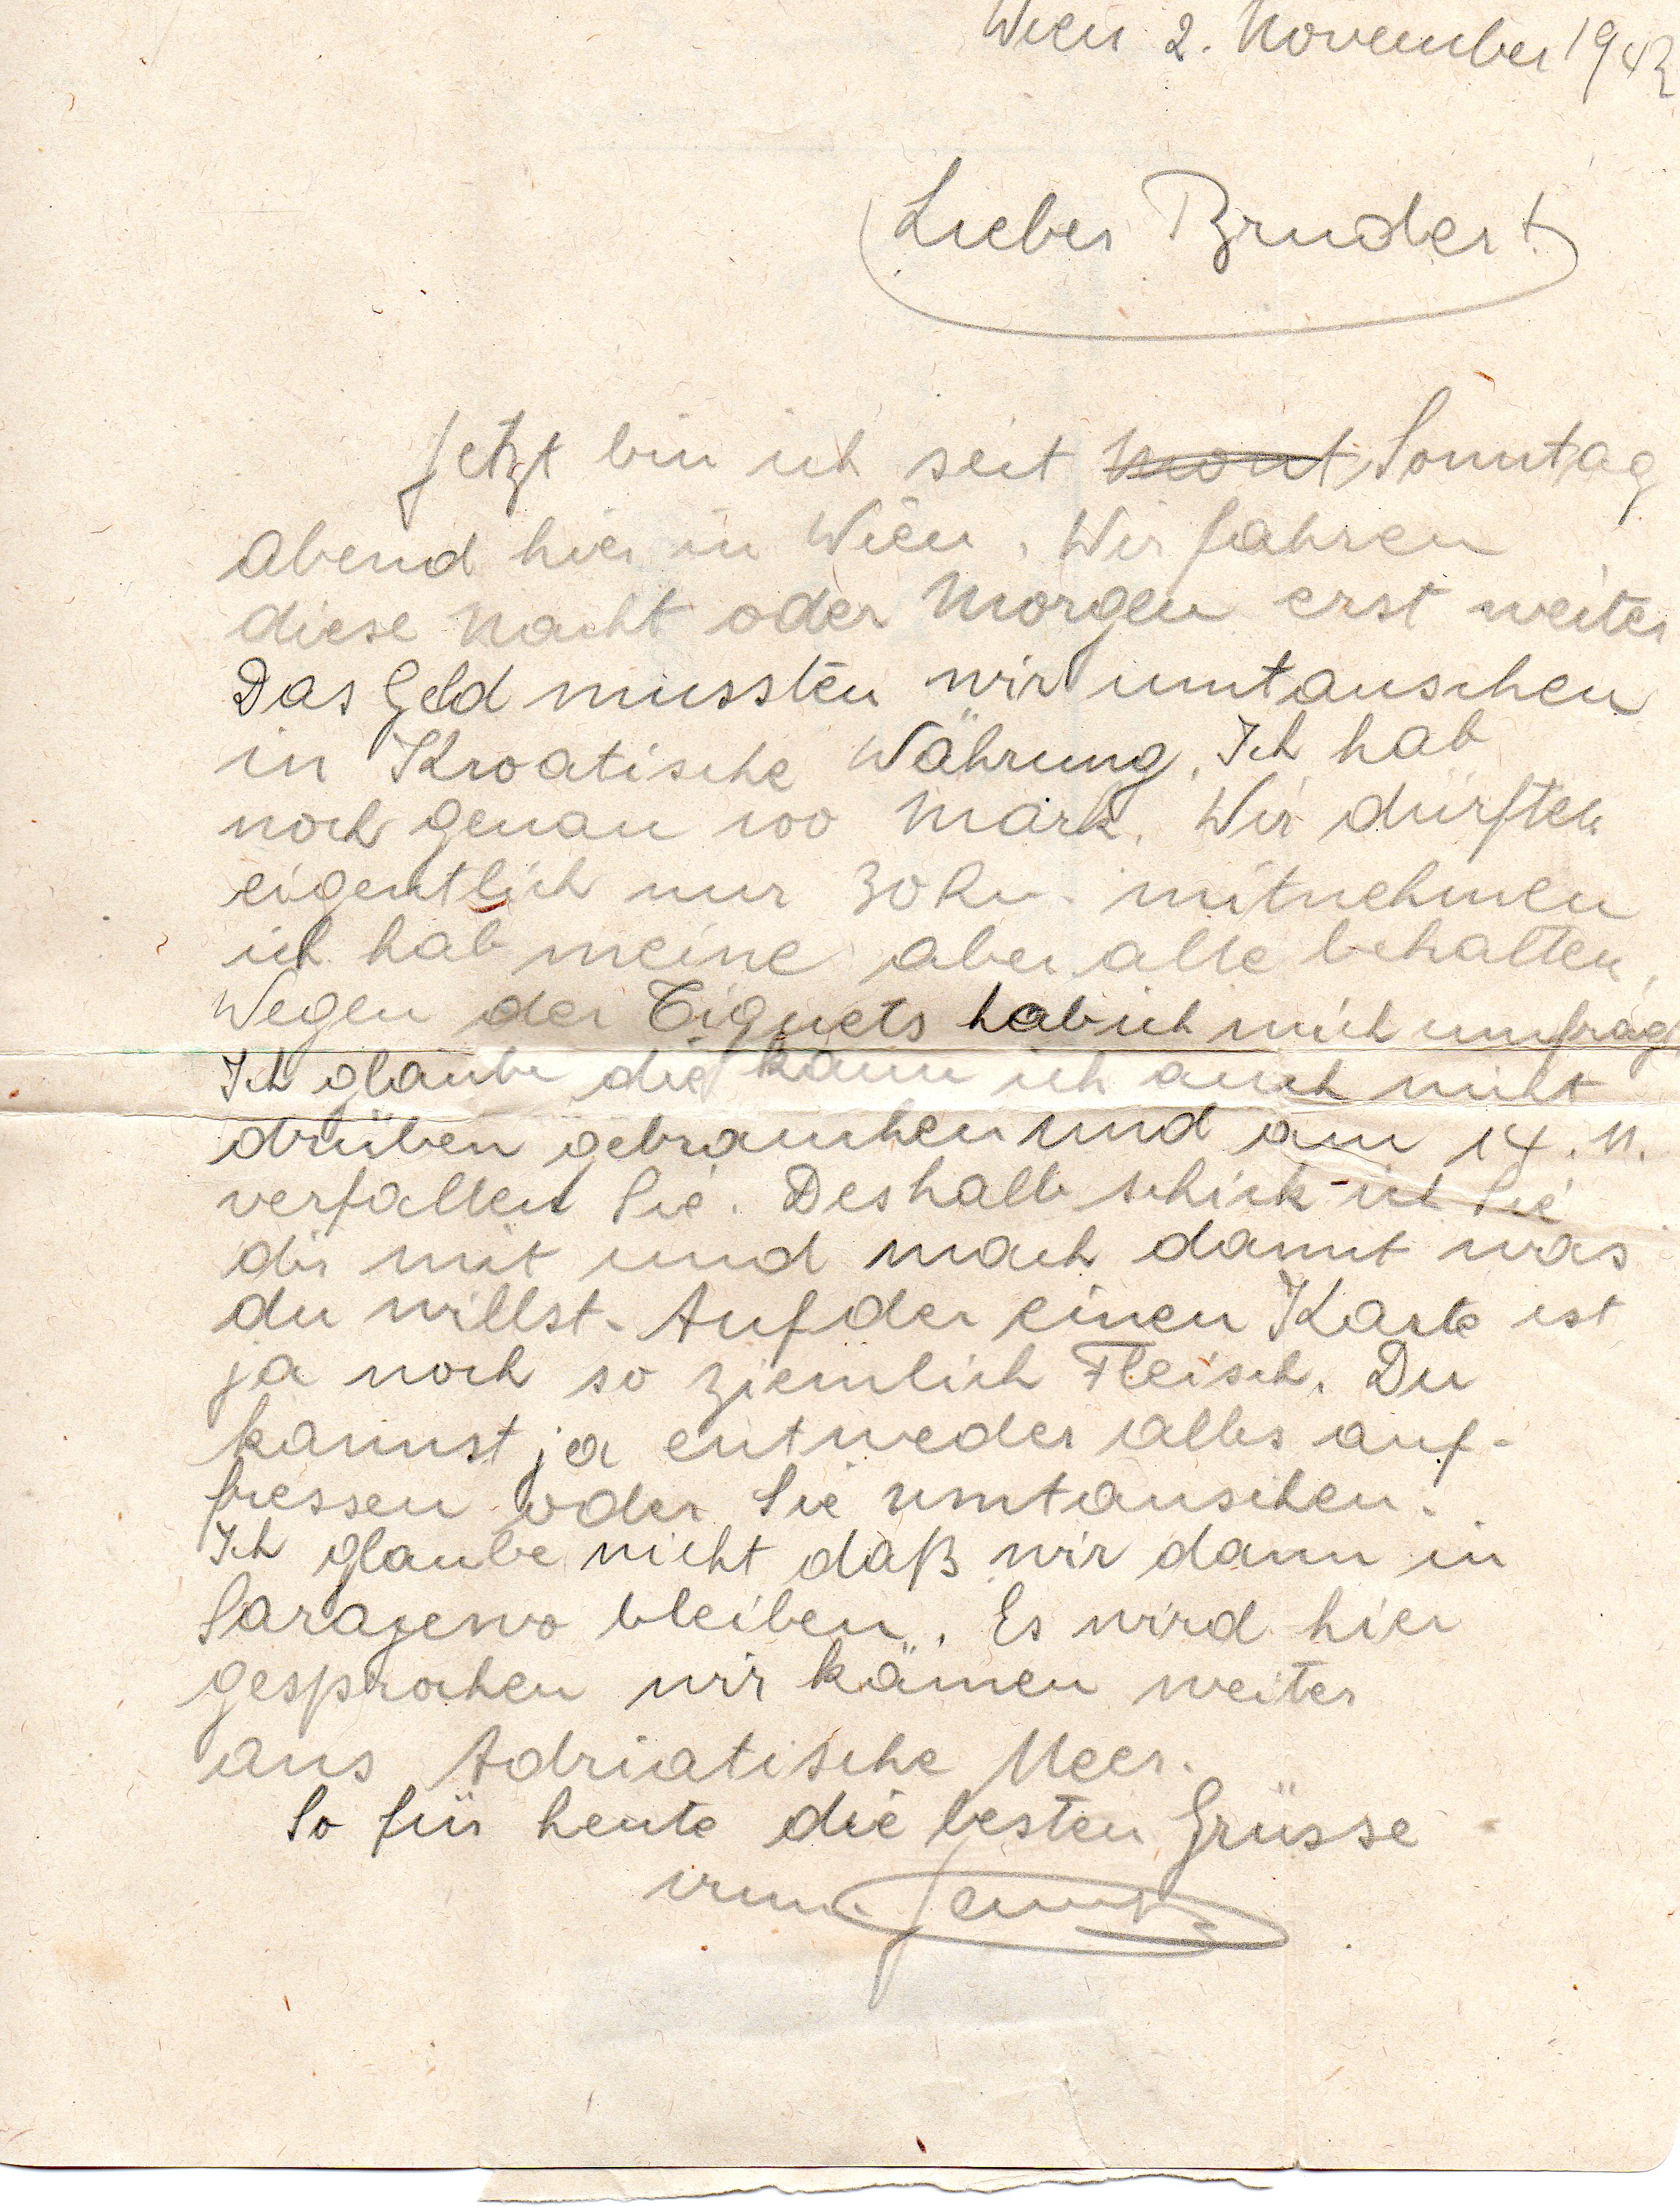 Wien 2. November 1942
Lieber Bruder!
Jetzt bin ich seit Mont Sonntag
Abend hier in Wien. Wir fahren
diese Nacht oder Morgen erst weiter
Das Geld mussten wir umtauschen
in Kroatische Währung. Ich hab
noch genau 100 Mark. Wir dürften
eigentlich nur 30 Rm. mitnehmen
ich hab meine aber alle behalten.
Wegen der hab ich mich umfrag
Ich glaube die kann ich auch nicht
drüben gebrauchen und am 14. 11.
verfallen Sie. Deshalb schick ich Sie
dir mit und mach damit was
du willst. Auf der einen Karte ist
ja noch so ziemlich Fleisch. Du
kannst ja entweder alles auf-
fressen oder Sie umtauschen.
Ich glaube nicht daß wir dann in
Sarajewo bleiben. Es wird hier
gesprochen wir kämen weiter
ans Adriatische Meer.
So für heute die besten Grüsse